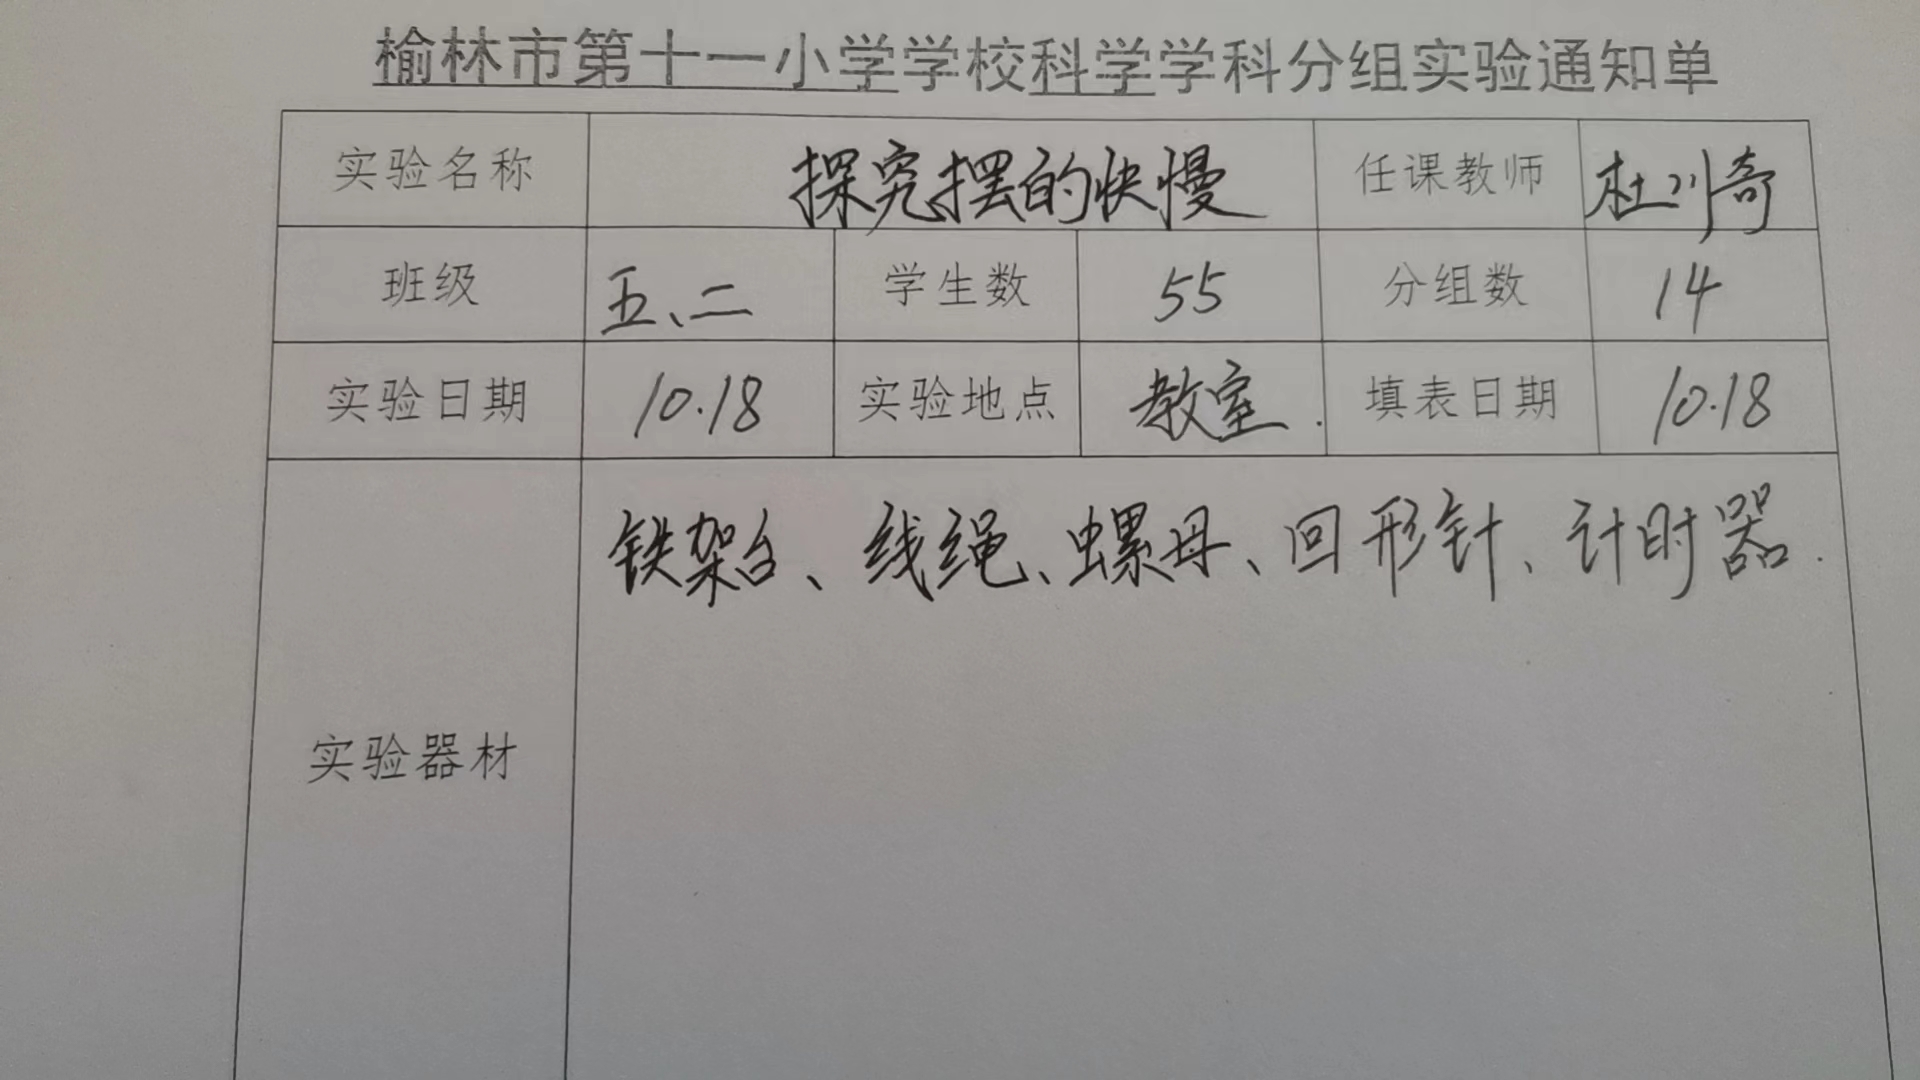 榆林市第十一小学学校科学学科分组实验通知单
实验名称 探究摆的快慢 任课教师 杜川奇
班级 五、二 学生数 55 分组数 14
实验日期 10.18 实验地点 教室. 填表日期 10.18
铁架台、线绳、螺母、回形针、计时器.
实验器材